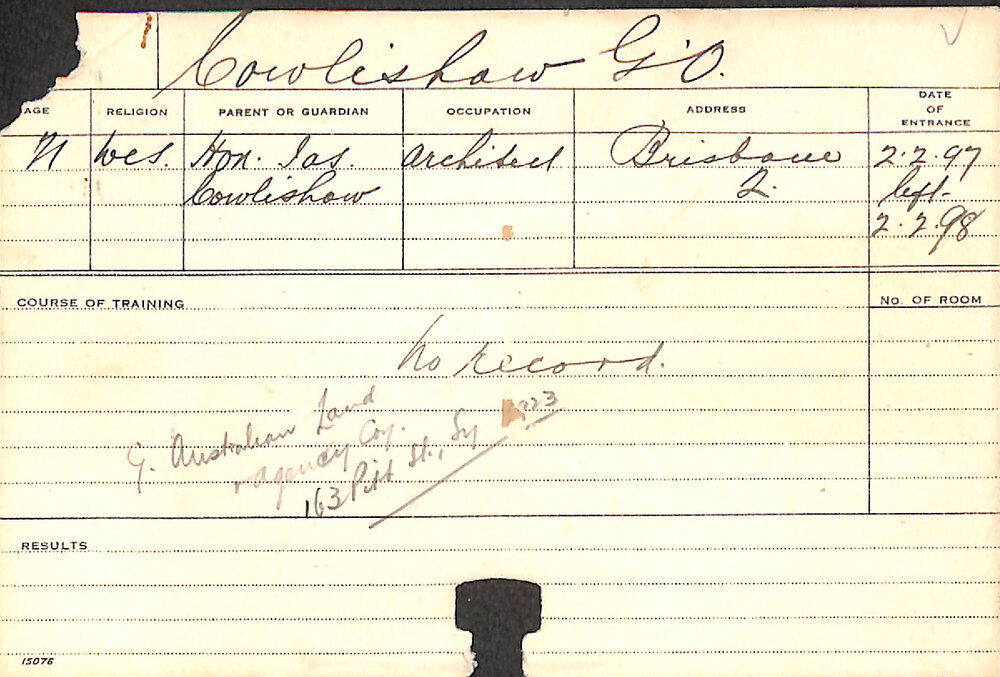 Cowlishaw G. O.
AGE RELIGION PARENT OR GUARDIAN OCCUPATION ADDRESS DATE OF ENTRANCE
Wes. Hon. Jas. Architect Brisbane 2.2.97
Cowlishaw 2. left
2.2.98
COURSE OF TRAINING No. OF ROOM
No record.
G. Australian Land
+ Agency Coy.
163 Pitt St., Sy
RESULTS
15076